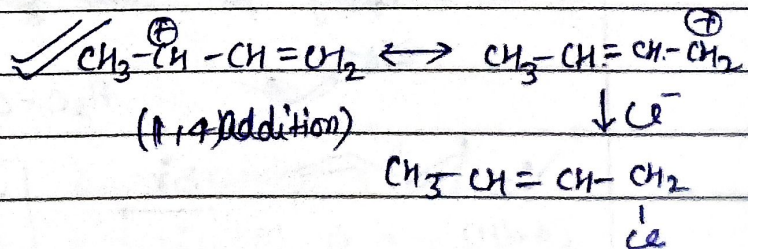 CH₃-CH⊕-CH=CH₂ ↔ CH₃-CH=CH-CH₂⊕
(1,4)Addition) ↓ Cl⁻
CH₃-CH=CH-CH₂
Cl